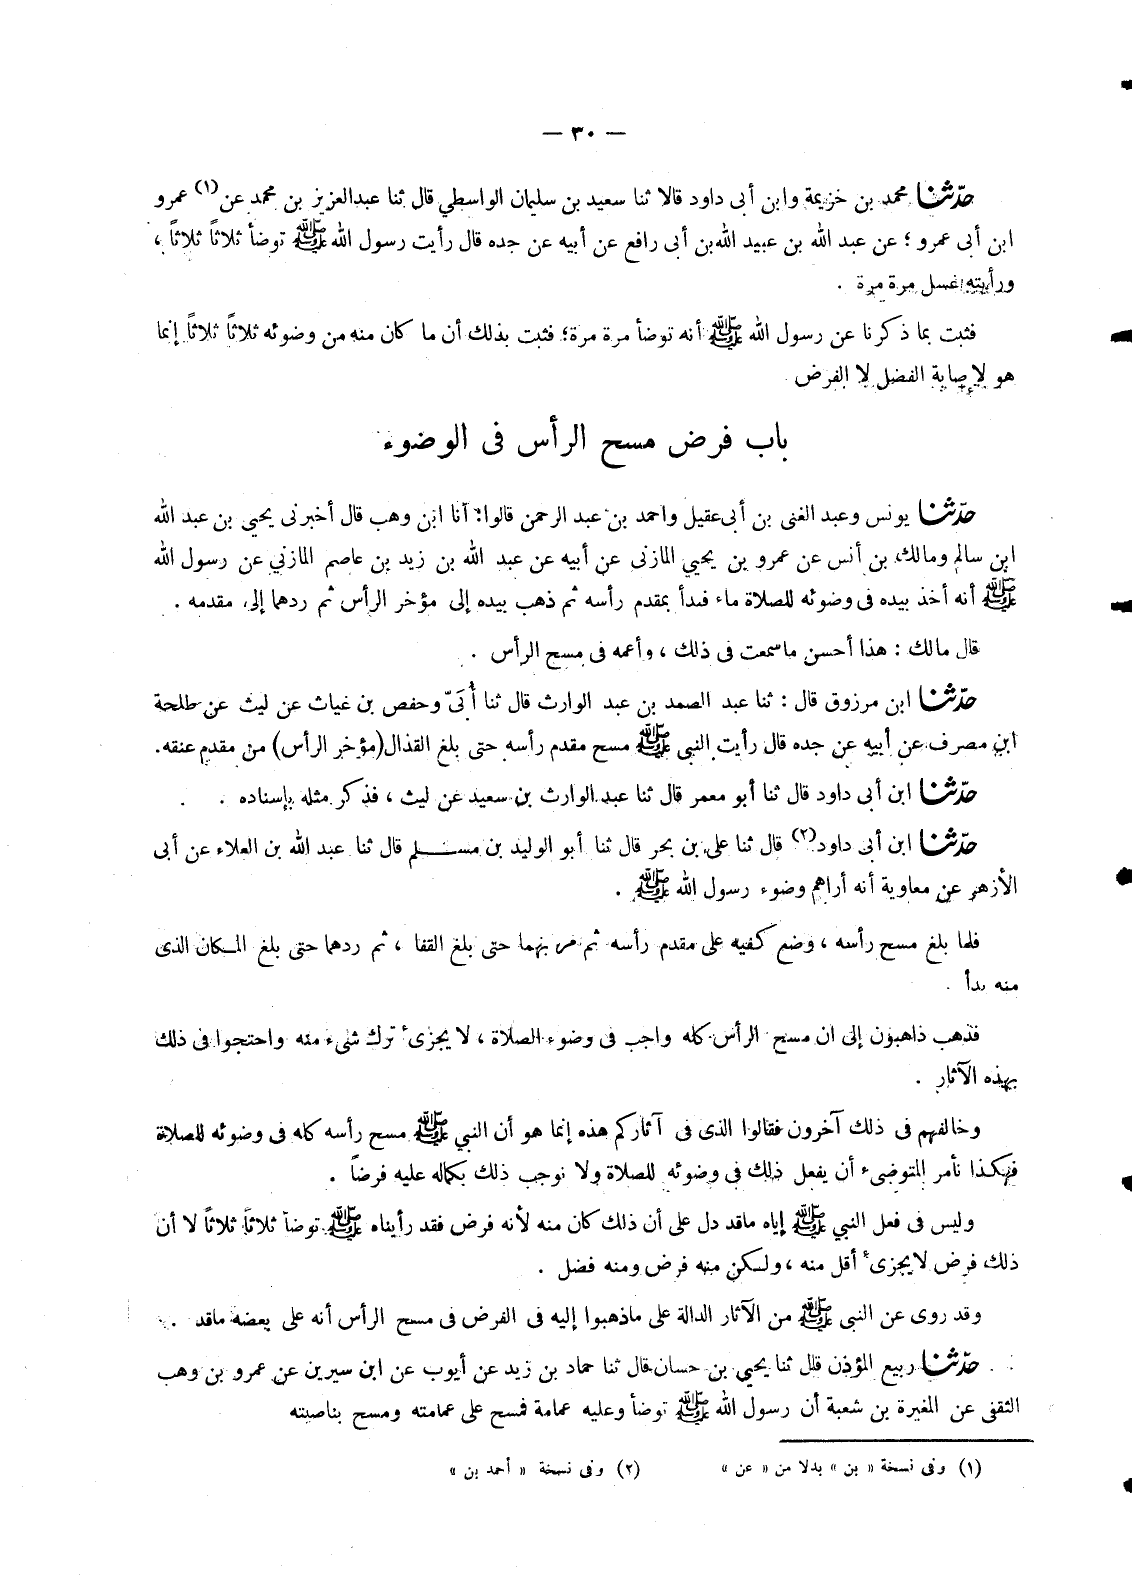 — ٣٠ —
حدّثنا محمد بن خزيمة وابن أبى داود قالا ثنا سعيد بن سليمان الواسطي قال ثنا عبدالعزيز بن محمد عن (١) عمرو
ابن أبى عمرو ؛ عن عبد الله بن عبيد الله بن أبى رافع عن أبيه عن جده قال رأيت رسول الله ﷺ توضأ ثلاثاً ثلاثاً ،
ورأيته غسل مرة مرة .
فثبت بما ذكرنا عن رسول الله ﷺ أنه توضأ مرة مرة؛ فثبت بذلك أن ما كان منه من وضوئه ثلاثاً ثلاثاً إنما
هو لإصابة الفضل لا الفرض
باب فرض مسح الرأس فى الوضوء
حدّثنا يونس وعبد الغنى بن أبى عقيل واحمد بن عبد الرحمن قالوا: أنا ابن وهب قال أخبرنى يحيي بن عبد الله
ابن سالم ومالك بن أنس عن عمرو بن يحيي المازنى عن أبيه عن عبد الله بن زيد بن عاصم المازني عن رسول الله
ﷺ أنه أخذ بيده فى وضوئه للصلاة ماء فبدأ بمقدم رأسه ثم ذهب بيده إلى مؤخر الرأس ثم ردهما إلى مقدمه .
قال مالك : هذا أحسن ماسمعت فى ذلك ، وأعمه فى مسح الرأس .
حدّثنا ابن مرزوق قال : ثنا عبد الصمد بن عبد الوارث قال ثنا أُبَىّ وحفص بن غياث عن ليث عن طلحة
ابن مصرف عن أبيه عن جده قال رأيت النبى ﷺ مسح مقدم رأسه حتى بلغ القذال(مؤخر الرأس) من مقدم عنقه.
حدّثنا ابن أبى داود قال ثنا أبو معمر قال ثنا عبد الوارث بن سعيد عن ليث ، فذكر مثله بإسناده .
حدّثنا ابن أبى داود(٢) قال ثنا على بن بحر قال ثنا أبو الوليد بن مسلم قال ثنا عبد الله بن العلاء عن أبى
الأزهر عن معاوية أنه أراهم وضوء رسول الله ﷺ .
فلما بلغ مسح رأسه ، وضع كفيه على مقدم رأسه ثم مر بهما حتى بلغ القفا ، ثم ردهما حتى بلغ المكان الذى
منه بدأ .
فذهب ذاهبون إلى ان مسح الرأس كله واجب فى وضوء الصلاة ، لا يجزىء ترك شىء منه واحتجوا فى ذلك
بهذه الآثار .
وخالفهم فى ذلك آخرون فقالوا الذى فى آثاركم هذه إنما هو أن النبي ﷺ مسح رأسه كله فى وضوئه للصلاة
فهكذا نأمر المتوضىء أن يفعل ذلك فى وضوئه للصلاة ولا نوجب ذلك بكماله عليه فرضاً .
وليس فى فعل النبي ﷺ إياه ماقد دل على أن ذلك كان منه لأنه فرض فقد رأيناه ﷺ توضأ ثلاثاً ثلاثاً لا أن
ذلك فرض لايجزىء أقل منه ، ولكن منه فرض ومنه فضل .
وقد روى عن النبى ﷺ من الآثار الدالة على ماذهبوا إليه فى الفرض فى مسح الرأس أنه على بعضه ماقد .
حدّثنا ربيع المؤذن قال ثنا يحيي بن حسان قال ثنا حماد بن زيد عن أيوب عن ابن سيرين عن عمرو بن وهب
الثقفى عن المغيرة بن شعبة أن رسول الله ﷺ توضأ وعليه عمامة فمسح على عمامته ومسح بناصيته
(١) وفى نسخة « بن » بدلا من « عن » (٢) وفى نسخة « أحمد بن »